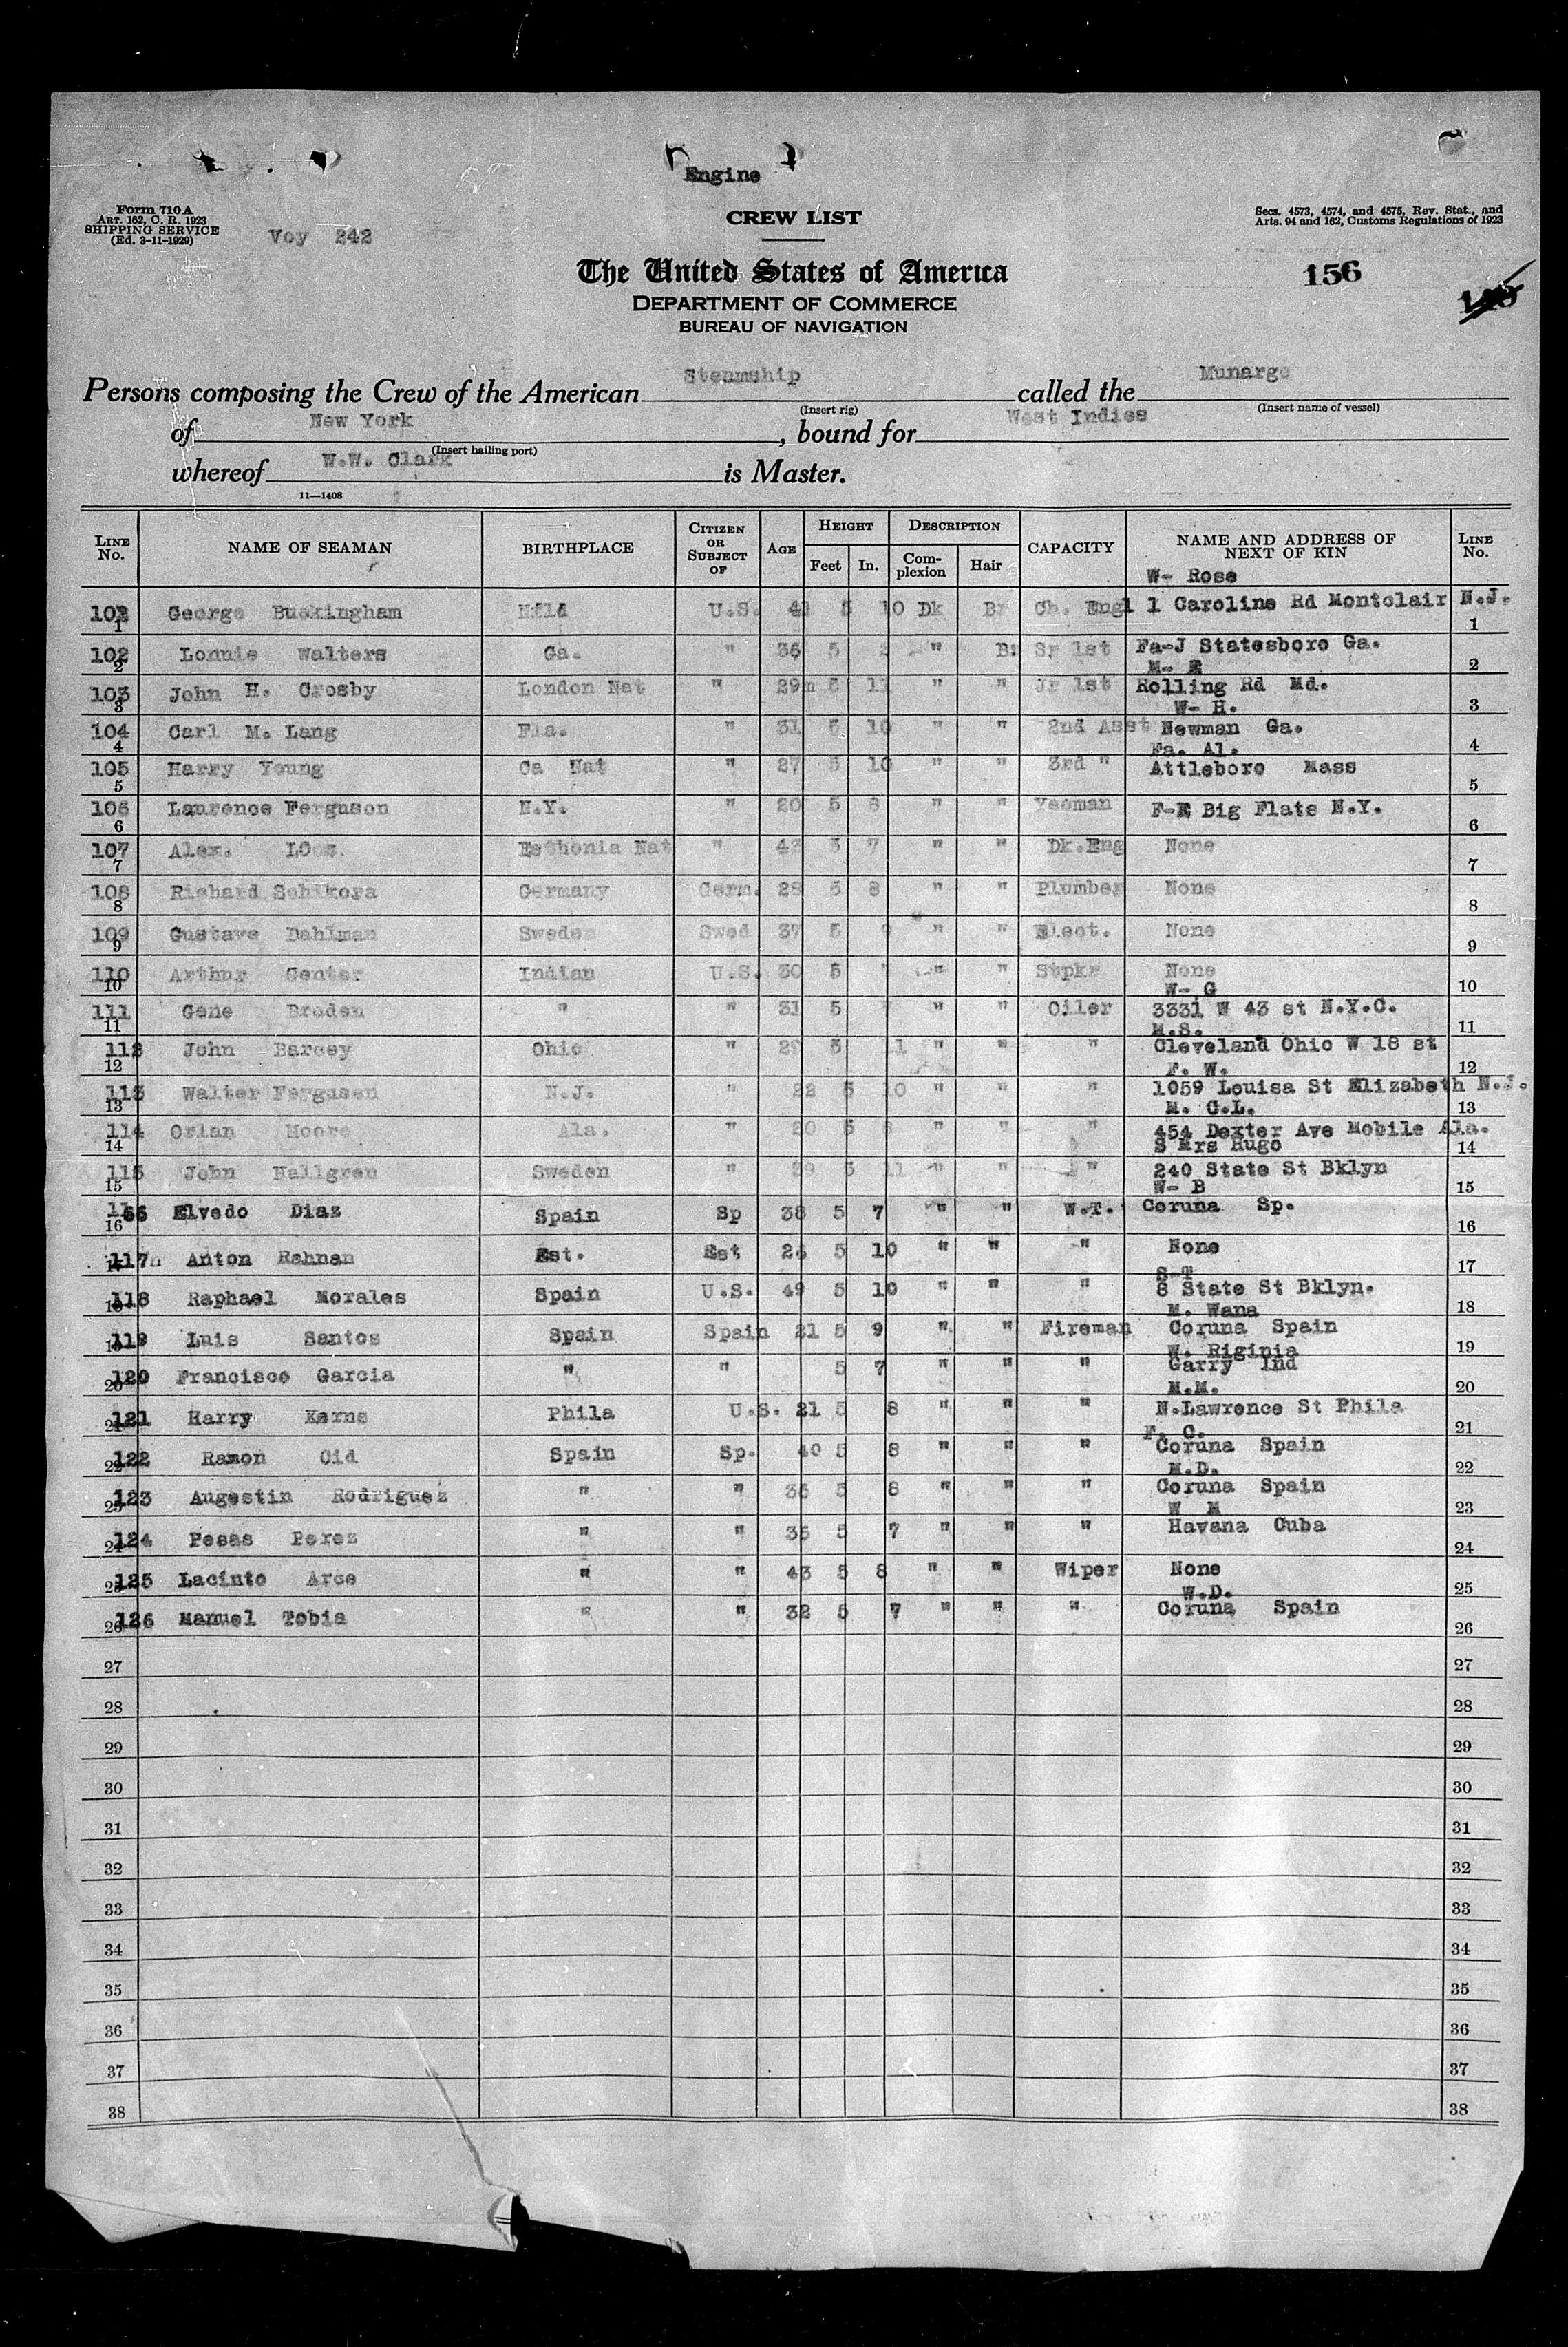 Engine
Form 710 A
ART. 162, C. R. 1923
SHIPPING SERVICE
(Ed. 3-11-1929)
Voy 242
CREW LIST
Secs. 4573, 4574, and 4575, Rev. Stat., and
Arts. 94 and 162, Customs Regulations of 1923
The United States of America
156
DEPARTMENT OF COMMERCE
BUREAU OF NAVIGATION
Persons composing the Crew of the American Steamship called the Munargo
(Insert rig) (Insert name of vessel)
of New York, bound for West Indies
(Insert hailing port)
whereof W.W. Clark is Master.
11—1408
LINE No. NAME OF SEAMAN BIRTHPLACE CITIZEN OR SUBJECT OF AGE HEIGHT Feet In. DESCRIPTION Complexion Hair CAPACITY NAME AND ADDRESS OF NEXT OF KIN LINE No.
W- Rose
1 George Buckingham U.S. 41 5 10 Dk Br Ch. Eng 1 Caroline Rd Montclair N.J. 1
102 2 Lonnie Walters Ga. " 36 5 " Br Sr 1st Fa-J Statesboro Ga. 2
M- E
103 3 John H. Crosby London Nat " 29 5 11 " " Jr 1st Rolling Rd Md. 3
W- H.
104 4 Carl M. Lang Fla. " 31 5 10 " " 2nd Asst Newman Ga. 4
Fa. Al.
105 5 Harry Young Ca Nat " 27 5 10 " " 3rd " Attleboro Mass 5
106 6 Laurence Ferguson N.Y. " 20 5 8 " " Yeoman F-E Big Flats N.Y. 6
107 7 Alex. LOos Esthonia Nat " 5 7 " " Dk.Eng None 7
108 8 Richard Schikora Germany Germ. 5 8 " " Plumber None 8
109 9 Gustave Dahlman Sweden Swed 37 5 " " Elect. None 9
110 10 Arthur Center Indian U.S. 30 5 " " Stpkr None 10
W- G
111 11 Gene Broden " " 31 5 " " Oiler 3331 W 43 st N.Y.C. 11
M.S.
112 12 John Barcey Ohio " 29 5 11 " " " Cleveland Ohio W 18 st 12
F. W.
113 13 Walter Fergusen N.J. " 22 5 10 " " " 1059 Louisa St Elizabeth N.J. 13
M. C.L.
114 14 Orian Moore Ala. " 20 5 8 " " " 454 Dexter Ave Mobile Ala. 14
S Mrs Hugo
115 15 John Hallgren Sweden " 29 5 11 " " " 240 State St Bklyn 15
W- B
16 Elvedo Diaz Spain Sp 38 5 7 " " W.T. Coruna Sp. 16
117 Anton Rahnan Est. Est 5 10 " " " None 17
S-T
118 Raphael Morales Spain U.S. 49 5 10 " " " 8 State St Bklyn. 18
M. Wana
119 Luis Santos Spain Spain 21 5 9 " " Fireman Coruna Spain 19
W. Riginia
120 Francisco Garcia " " 5 7 " " " Garry Ind 20
M.M.
121 Harry Kerns Phila U.S. 21 5 8 " " " N.Lawrence St Phila 21
F. C.
122 Ramon Cid Spain Sp. 40 5 8 " " " Coruna Spain 22
M.D.
123 Augestin Rodriguez " " 36 5 8 " " " Coruna Spain 23
W M
124 Pesas Perez " " 36 5 7 " " " Havana Cuba 24
125 Lacinto Arce " " 43 5 8 " " Wiper None 25
W.D.
126 Manuel Tobia " " 32 5 7 " " " Coruna Spain 26
27 27
28 28
29 29
30 30
31 31
32 32
33 33
34 34
35 35
36 36
37 37
38 38